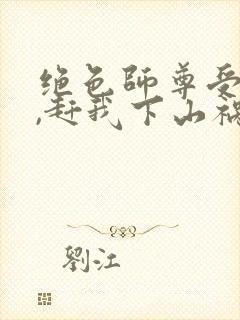 绝色师尊受
,赶我下山祸
劉江